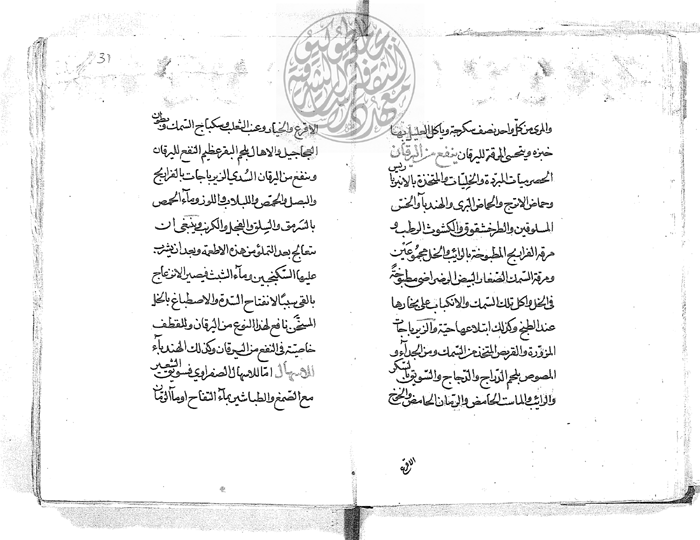 والمرى من كل واحد نصف سكرجة وياكل العليل بها
خبزه ويتحسى المرقة لليرقان ينفع من اليرقان
الحصرميات المبردة والخليات والمتخذة بالانبرباريس
وحماض الاترج والحماض البرى والهندبا والخس
المسلوقين والطرخشقوق والكشوث الرطب و
مرقة الفراريج المطبوخة بالرايب والخل مجموعين
ومرقة السمك الصغار البيض الرضراضى مطبوخة
فى الخل واكل تلك السمك والانكباب على بخارها
عند الطبخ وكذلك ابتلاعها حية والزيرباجات
المزورة والقريص المتخذ من السمك ومن الجداء و
المصوص بلحم الدراج والدجاج والسويق بالسكر
والرايب والماست الحامض والرمان الحامض والخوخ
الاقرع
31
الاقرع والخيار وعنب الثعلب وسكباج السمك وبطون
العجاجيل والاهال بلحم البقر عظيم النفع لليرقان
وينفع من اليرقان السددي الزيرباجات بالفراريج
والبصل والحمص واللبلاب واللوز وماء الحمص
بالسرمق والسلق والفجل والكرنب وينبغى ان
يتعالج بعد التملؤ من هذه الاطعمة وبعد ان يشرب
عليها السكنجبين وماء الشبث فيصير الانزعاج
بالقى سببا لانفتاح السدة والاصطباغ بالخل
المسخن نافع لهذا النوع من اليرقان وللقطف
خاصية فى النفع من اليرقان وكذلك الهندباء
للاسهال اما للاسهال الصفراوي فسويق الشعير
مع الصمغ والطباشير بماء التفاح او ماء الرمان